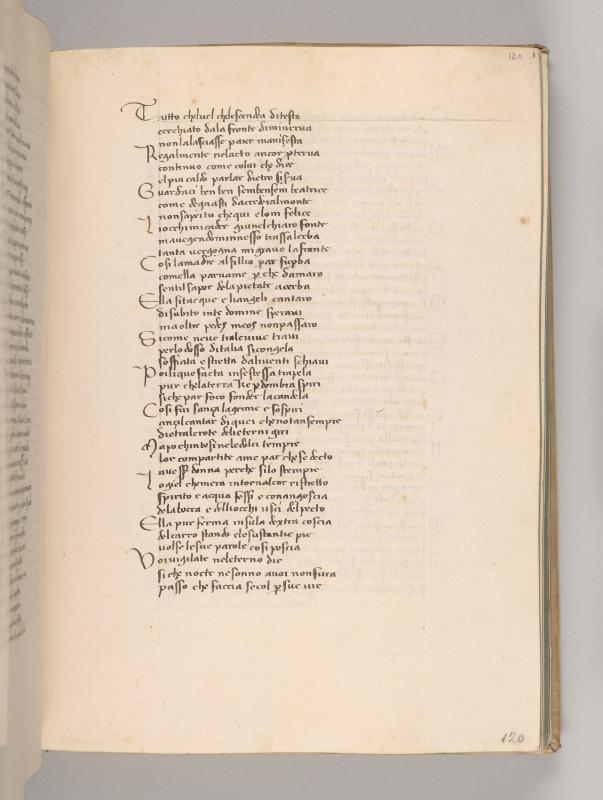 120
Tutto chel vel chelescendea ditesta
cerchiato dala fronde diminerva
nonlalasciasse parer manifesta
Regalmente nelacto ancor pterva
continuo come colui che dice
elpiu caldo parlar dietro si serva
Guardaci ben ben sembensem beatrice
come degnasti dacederalmonte
nonsapeitu chequi elom felice
Liocchimicader giunelchiaro fonte
mavegendominnesso trassalerba
tanta vergogna migravo lafronte
Cosi lamadre alfillio par supba
comella parveame p che damaro
sentilsapor delapietate acerba
Ella sitacque e liangeli cantaro
disubito inte domine speravi
maoltre pedes meos nonpassaro
Sicome neve tralevive travi
perlodosso ditalia sicongela
soffiata e stretta daliventi schiavi
Poiliquefacta insestessa trapela
pur chelaterra che pdombra spiri
siche par foco fonder lacandela
Cosi fui sanza lagrime e sospiri
anzilcantar diquei chenotansempre
dietralenote delieterni giri
Mapochintesineledolci tempre
lor compartire ame par chese decto
avesser donna perche silo stempre
Logiel chemera intornalcor ristretto
spirito e acqua fessi e conangoscia
delabocca e delliocchi usci delpecto
Ella pur ferma insula dextra coscia
delcarro stando elesustantie pie
volse lesue parole cosi poscia
Voivigilate neleterno die
siche nocte nesonno avoi nonfura
passo che faccia secol p sue vie
120